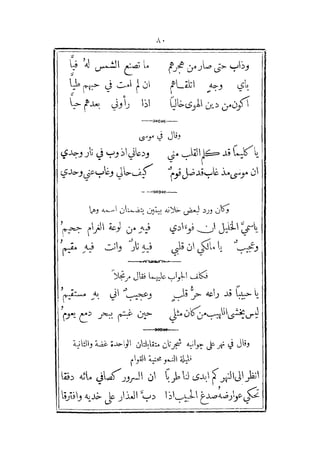 ٨٠
وذاب حتى صار من هجرهم ما تصنع الشمس لهُ فيَّا
باي وجهٍ اتلقـاهم ان لم امت في حبهم طيَّا
اكون من دين الهوى خاليًا اذا رأوني بعدهم حيَّا
وقال في موسى
يا كليمًا قد كلم القلب مني ودعاني اذوب في نار وجدي
ان موسى مذ غاب قد ضل قومٌ كيف حالي وغاب عني وحدي
وكان ورد لبعض خلانه بيتين يتضمنان اسمه وهما
يا سميَّ الخليل ان فوءادي فيهِ من لوعة الغرام جحيمُ
وعجيبٌ يا مالكي ان قلبي فيهِ نارٌ وانت فيهِ مقيمُ
فكلف الجواب عليهما فقال مرتجلاً
يا حبيبًا قد راعه حرُّ قلبٍ وعجيبٌ اني بهِ مستقيمُ
ليس يخشى اللهيب من كان مثلي حين غبتم ببحر دمع يعومُ
وقال في نهر على جوانبه شجرتان متقابلتان الواحدة غضة والثانية
قليلة النمو محنية القوام
انظر الى النهر كم ابدى لنا طربًا ان السرور كصافي مائه دفقا
تحكي عوارضهُ صدغ الحبيب اذا دبَّ العذار على خديه وافترقا